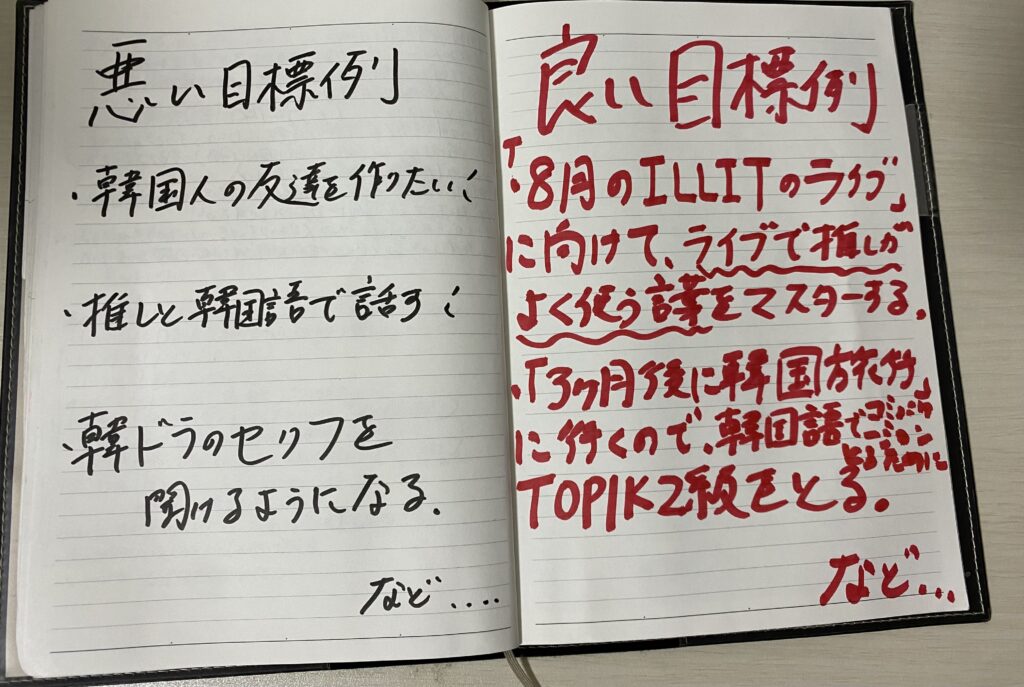 悪い目標例
・韓国人の友達を作りたい！
・推しと韓国語で話す！
・韓ドラのセリフを
聞けるようになる.
など....
良い目標例
・「8月のILLITのライブ」
に向けて、ライブで推しが
よく使う言葉をマスターする.
・「3ヶ月後に韓国旅行」
に行くので、韓国語でコミュニケーション
とるために
TOPIK2級をとる。
など...